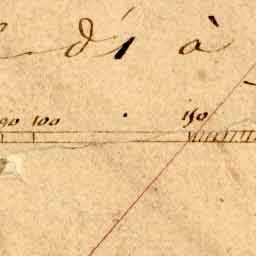 di à
100 150